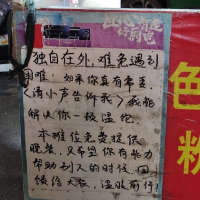 独自在外，难免遇到
困难，如果你真有事至
请小声告诉我，我能
解决你一顿温饱
本摊位免费提供
晚餐，只希望你有能力
帮助别人的时候 回
馈给大家，温暖前行！
色
粉